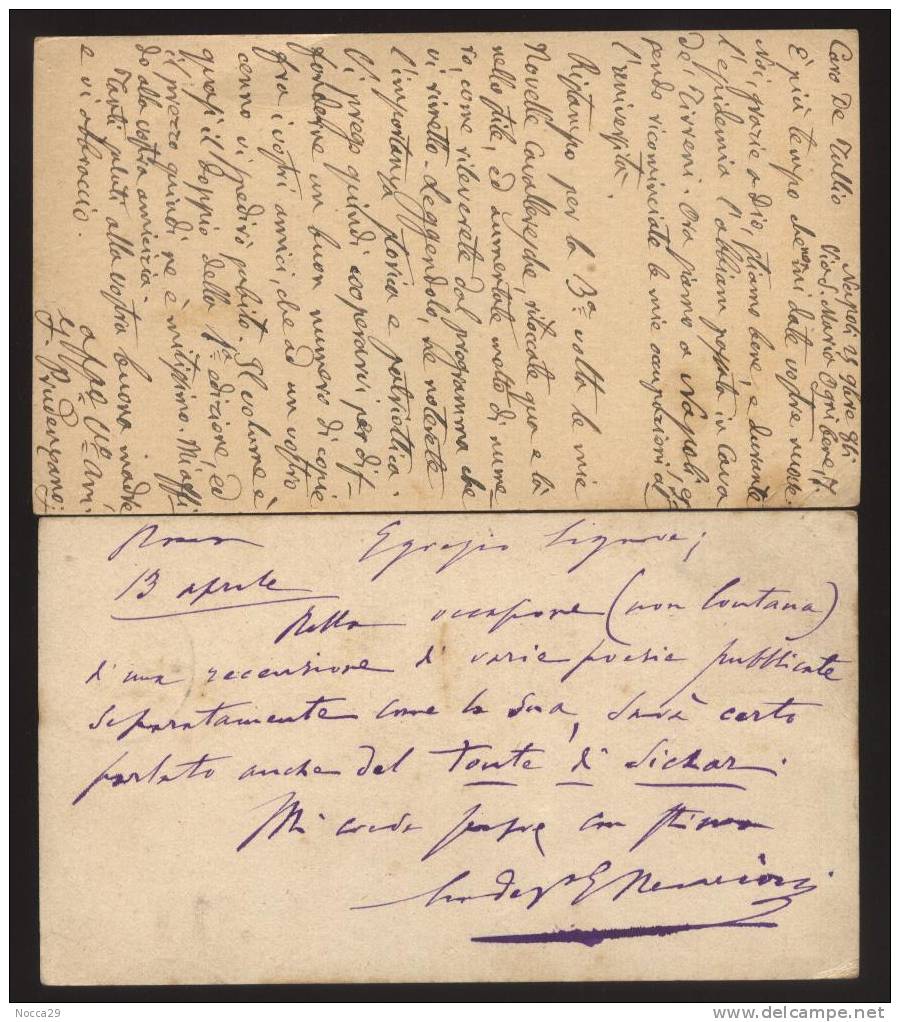 Napoli 25 9bre 84
Caro De Tullio Via S. Mario Ognibene, 7.
È più tempo che non mi date vostre nuove.
Noi, grazie a Dio, stiamo bene, e durante
l'epidemia l'abbiam passata in Cava
de' Tirreni. Ora siamo a Napoli, es
sendo ricominciate le mie occupazioni al
l'università.
Ristampo per la 3ª volta le mie
Novelle Cavalleresche, ritoccate qua e là
nello stile, ed aumentate molto di nume
ro, come rileverete dal programma che
vi rimetto. Leggendolo, ne noterete
l'importanza storica e patriottica.
Vi prego quindi cooperarvi per dif-
fonderne un buon numero di copie
fra i vostri amici, che ad un vostro
cenno vi spedirò subito. Il volume è
quasi il doppio della 1ª edizione, ed
il prezzo quindi ne è mitissimo. Mi affi
do alla vostra amicizia.
Tanti saluti alla vostra buona madre
e vi abbraccio.
affmo Vo Ami
G. Prudenzano
Roma Egregio Signore;
13 aprile
Nella occasione (non lontana)
d'una recensione di varie poesie pubblicate
separatamente come la sua, sarà certo
parlato anche del Fonte di Sichar.
Mi creda sempre con stima
E Nencioni
Nocca29
www.delcampe.net